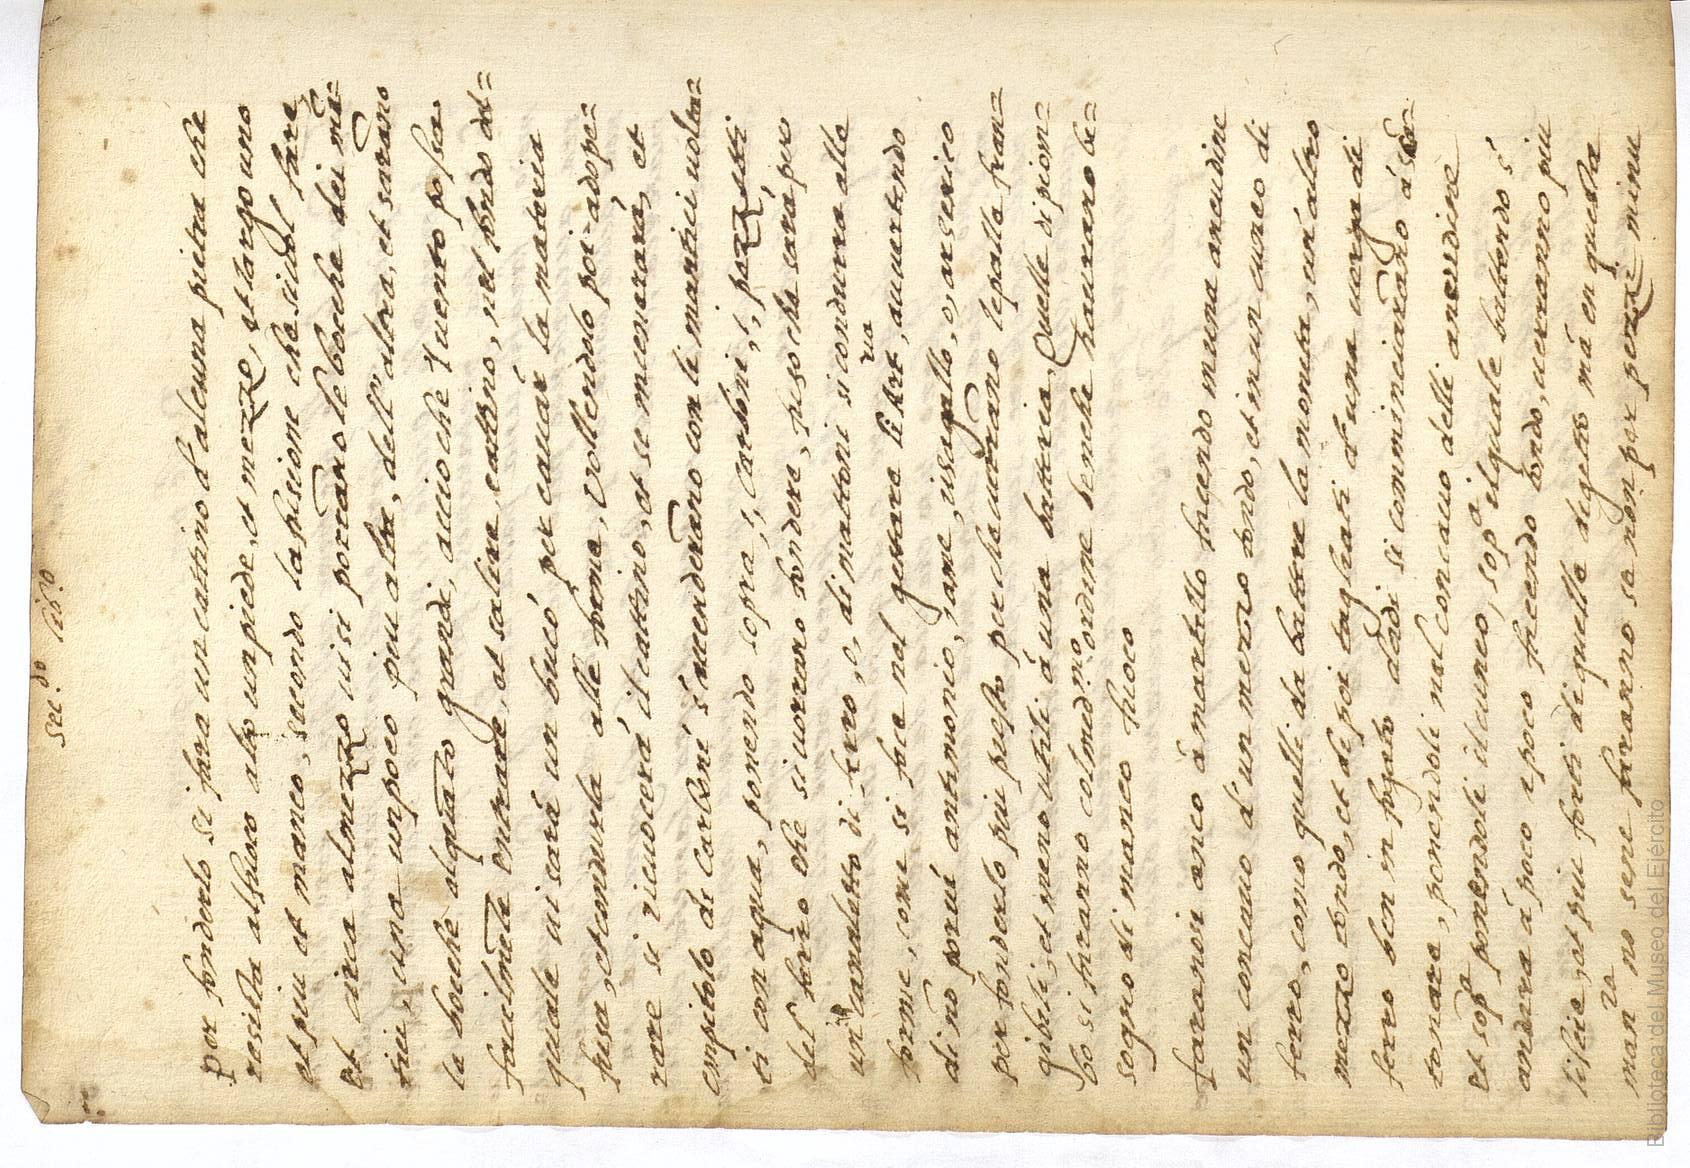 sec.do lib.o
per fonderlo si fara un catino d'alcuna pietra che
resista al fuoco alto un piede, et mezzo, et largo uno
et piu et manco, secondo la fusione che si vuol fare
et circa al mezzo vi si porrano le bocche dei mã=
tici, una un poco piu alta, dell' altra, et sarano
le bocche alquãto grandi, accio che 'l uento possa
facilmẽte entrare, al salire, catino, nel fondo del=
quale ui sará un bucó per cauar la materia
fusa, et condurla alle forme, Vollendolo poi adope=
rare si ricuocerá il catino, et se
empirlo di carboni s' accenderãno con le mantici uolta=
ti con aqua, ponendo sopra i carboni, i pezzetti
del ferro che si uorrano fondere, fuso che sará per
un canaletto di ferro, o, di mattoni si condurra alle
forme, come si face nel gettare l'art.ria, auuertendo
di nõ porui antimonio, rame, o, arsenico
per fonderlo piu presto perche uerrano le palle fran=
gibili, et meno utili á una batteria, Quelle di piom=
bo si farano col med.mo ordine benche haurano bi=
sogno di manco fuoco
faranosi anco à martello facendo in una ancudine
un concauo d'un mezzo tondo, et in un cuneo di
ferro, come quelli da battere la moneta, un' altro
mezzo tondo, et di poi tagliati d'una uerga di
ferro ben in fogato dadi si cominciarano á
tonare, ponendoli nel concauo della ancudine
et sopa ponendoli il cuneo, sopa il quale battendo s'
andara á poco a poco facendo tondo, uerranno piu
liscie, et piu forti di quelle di getto mà en questa
man.ra no sene farano se nõn per pezzi minu
Biblioteca del Museo del Ejército